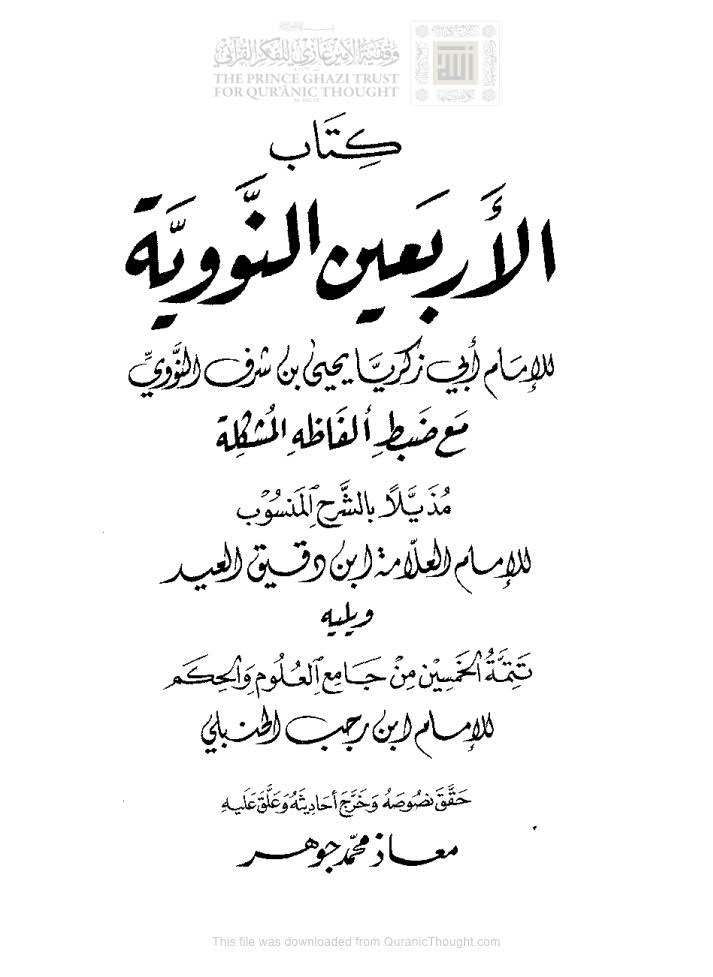 وقفية الأمير غازي للفكر القرآني
THE PRINCE GHAZI TRUST
FOR QUR'ĀNIC THOUGHT
كِتَاب
الأَربَعين النَّوويَّة
للإمَام أبي زكريَّا يحيى بن شرف النَّوَويِّ
مَع ضَبطِ ألفَاظهِ المُشكِلة
مُذَيَّلًا بالشَّرحِ المَنسُوب
للإمام العلّامة ابن دقيق العيد
ويليه
تَتِمَّةُ الخَمسِيْن مِنْ جَامِع العُلُوم وَالحِكَم
للإمام ابن رجب الحنبلي
حَقَّقَ نصُوصَهُ وَخَرَّجَ أحَاديثَهُ وَعَلَّقَ عَلَيهِ
معاذ محمّد جوهر
This file was downloaded from QuranicThought.com